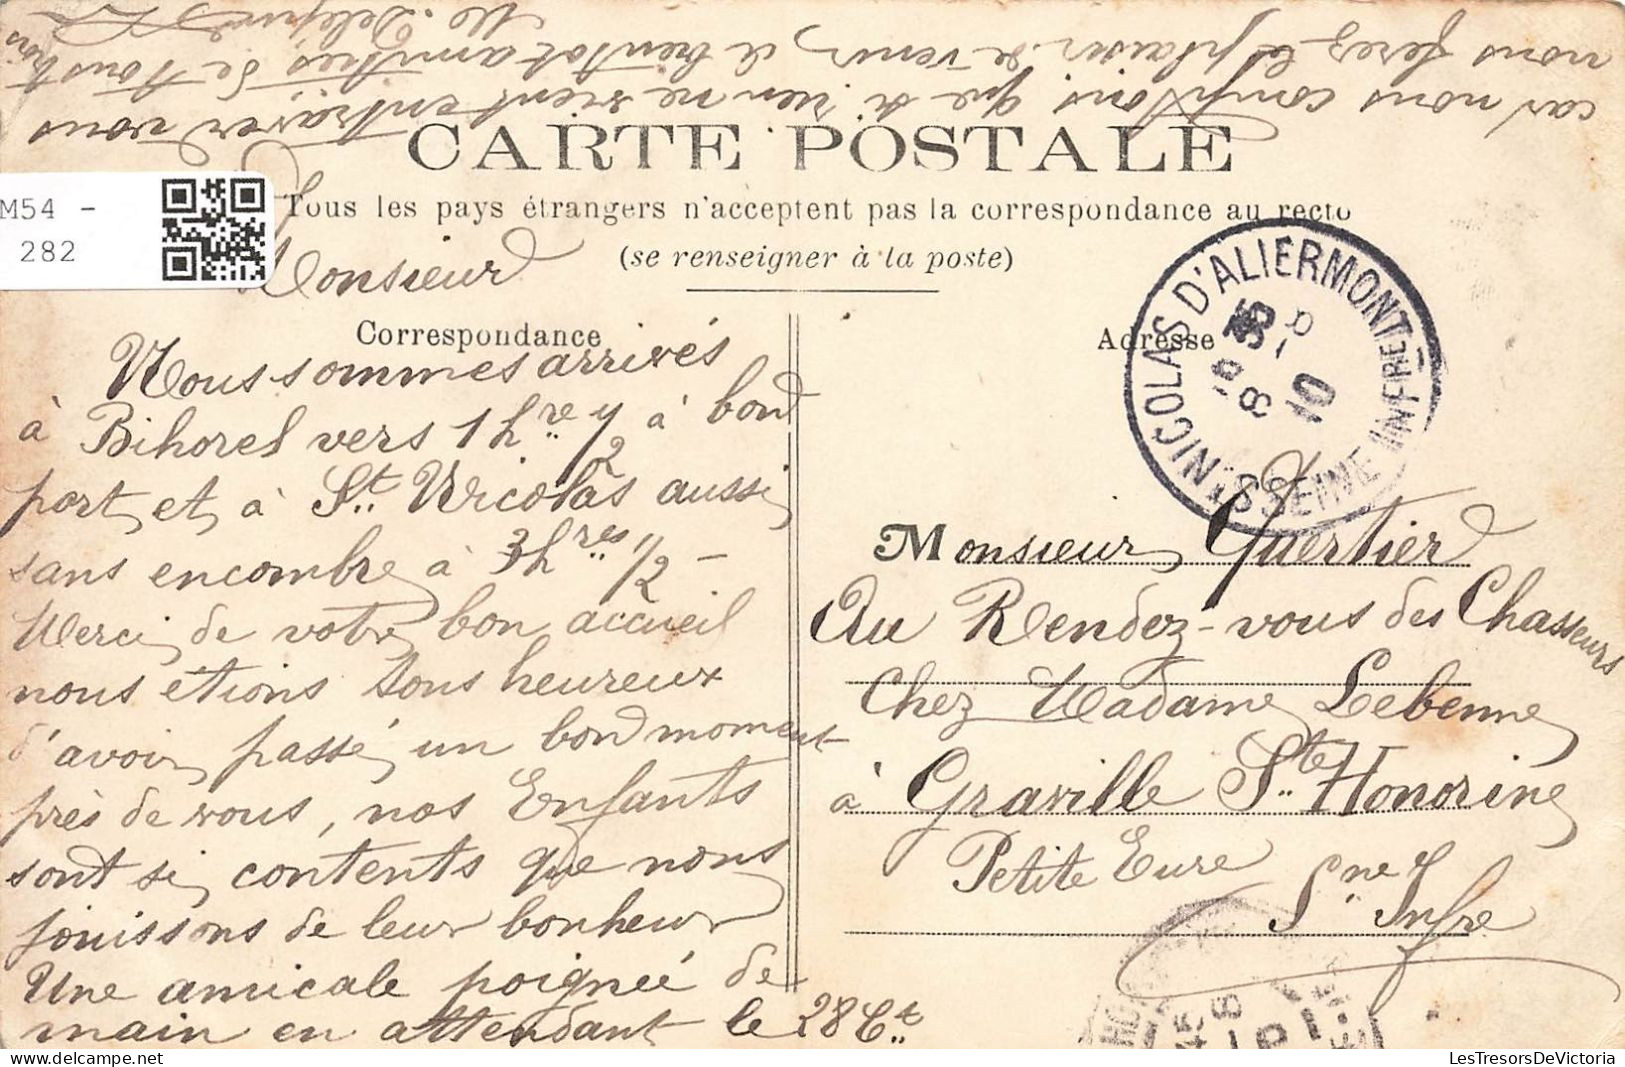 CARTE POSTALE
Tous les pays étrangers n'acceptent pas la correspondance au recto
(se renseigner à la poste)
M54 -
282
Correspondance
Adresse
Monsieur
Nous sommes arrivés
à Bihorel vers 1 hre 1/2 à bon
port et à St. Nicolas aussi
sans encombre à 3 hres 1/2 -
Merci de votre bon accueil
nous étions tous heureux
d'avoir passé un bon moment
près de vous, nos Enfants
sont si contents que nous
jouissons de leur bonheur
Une amicale poignée de
main en attendant le 28 Ct.
car nous comptons que si rien ne vient entraver vous
nous ferez le plaisir de venir, à bientôt amitiés de tous trois
Monsieur Quertier
Au Rendez-vous des Chasseurs
Chez Madame Lebenne
à Graville Ste Honorine
Petite Eure
Sne Infre
ST NICOLAS D'ALIERMONT
SEINE INFRE
LesTresorsDeVictoria